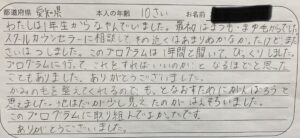 都道府県 愛知県 本人の年齢 10さい お名前
わたしは1年生からなやんでいました。最初はまつも、まゆもからでした
スクールカウンセラーに相談してその近くはあまりわかなかったけどまた
さいはつしました。このプログラムは1時間と聞いて、びっくりしました
プログラムに行って、これをすればいいのかと、なるほどと思った
こともありました。ありがとうございました。
かみのもを整えてくれるので、もっとなおすためにがんばろうと
思えました。地はだが少し見えたのがはんぶんいました。
このプログラムに取り組んでよかったです。
ありがとうございました。